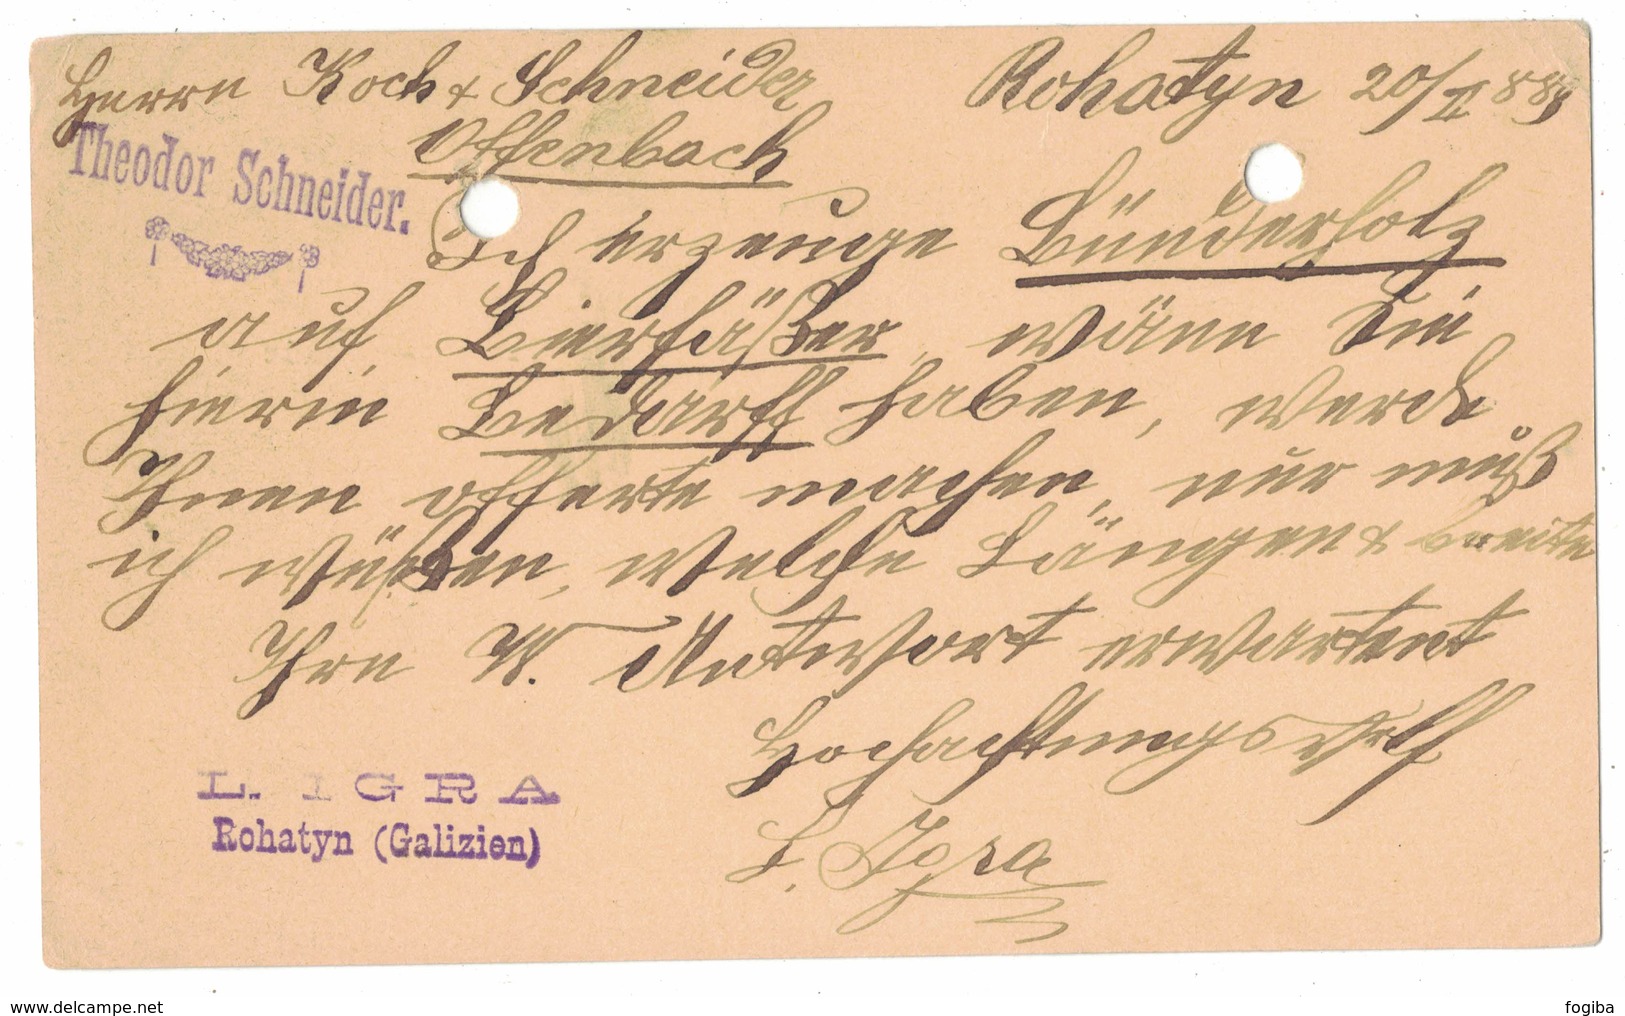 Herrn Koch & Schneider Rohatyn 20/II 888
Offenbach
Theodor Schneider.
Ich erzeuge Bünderholz
auf Bierfäßer, wänn Sie
hierin Bedarff haben, werde
Ihnen offerte machen, nur muß
ich wüßen, welche Längen & breite
Ihre W. Antwort erwartent
Hochachtungsvoll
L. Igra
L. IGRA
Rohatyn (Galizien)
www.delcampe.net
fogiba